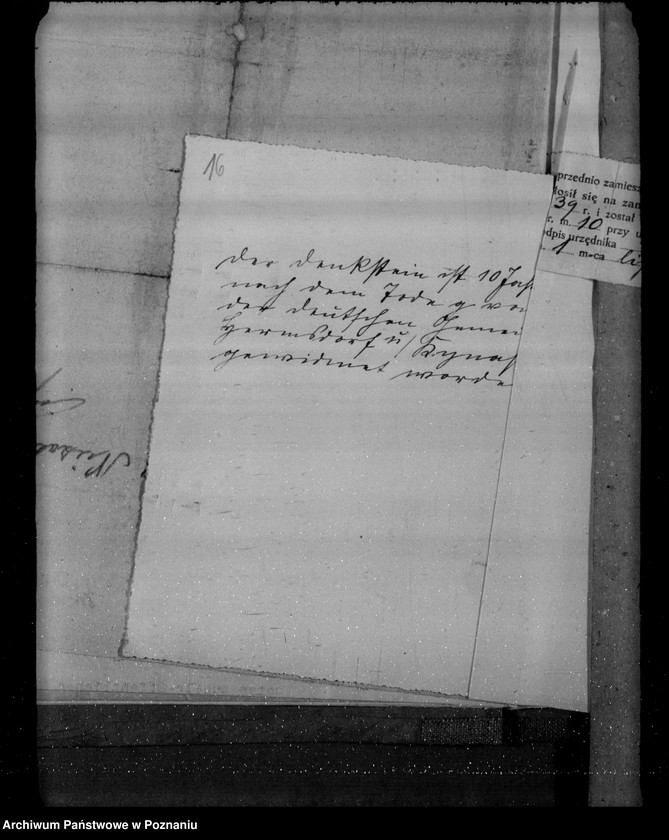 16
der Denkstein ist 10 Jah
nach dem Tode g von
der deutschen Gemei
Hermsdorf u/ Kynas
gewidmet worde
przednio zamiesz
łosił się na zam
39 r. i został
r. m. 10 przy u
dpis urzędnika
1 m-ca lip
Archiwum Państwowe w Poznaniu